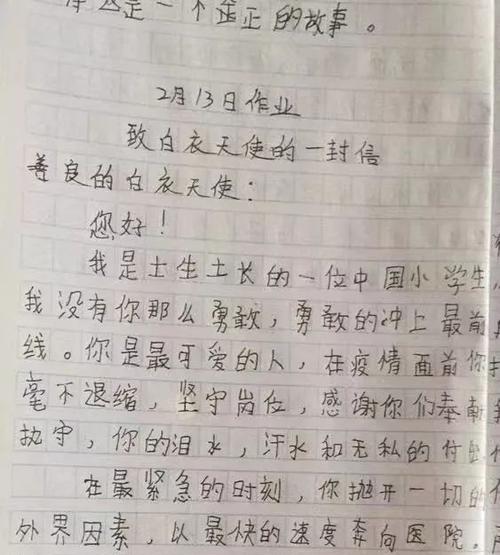 是一个歪正的故事。
2月13日作业
致白衣天使的一封信
善良的白衣天使：
您好！
我是土生土长的一位中国小学生，
我没有你那么勇敢，勇敢的冲上最前
线。你是最可爱的人，在疫情面前你
毫不退缩，坚守岗位，感谢你们奉献
执守，你的泪水，汗水和无私的付出
在最紧急的时刻，你抛开一切的
外界因素，以最快的速度奔向医院。